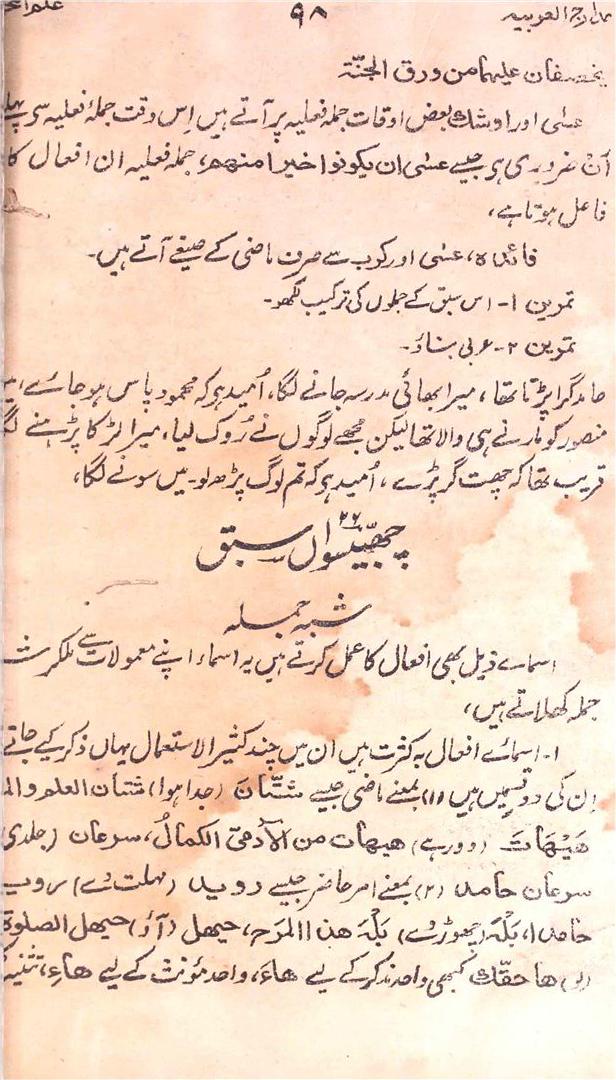 مدارج العربیہ ۹۸ علم النحو
یخصفان علیہما من ورق الجنّۃ
عسٰی اور اوشک بعض اوقات جملہ فعلیہ پر آتے ہیں اِس وقت جملۂ فعلیہ سے پہلے
اَنْ ضروری ہے جیسے عسٰی ان یکونوا خیرا منھم، جملہ فعلیہ ان افعال کا
فاعل ہوتا ہے،
فائدہ، عسٰی اور کرب سے صرف ماضی کے صیغے آتے ہیں۔
تمرین ۱۔ اس سبق کے جملوں کی ترکیب لکھو۔
تمرین ۲۔ عربی بناؤ۔
حامد گرا پڑتا تھا، میرا بھائی مدرسہ جانے لگا، اُمید ہے کہ محمود پاس ہو جائے،
منصور کو مارنے ہی والا تھا لیکن مجھے لوگوں نے رُوک لیا، میرا لڑکا پڑھنے لگا
قریب تھا کہ چھت گر پڑے، اُمید ہے کہ تم لوگ پڑھ لو۔ میں سونے لگا،
چھبّیسواں ۲۶ سبق
شبہ جملہ
اسمائے ذیل بھی افعال کا عمل کرتے ہیں یہ اسماء اپنے معمولات سے ملکر
جملہ کہلاتے ہیں،
۱۔ اسمائے افعال یہ کثرت ہیں ان میں چند کثیر الاستعمال یہاں ذکر کیے جاتے
اِن کی دو قسمیں ہیں (۱) بمعنے ماضی جیسے شتّانَ (جدا ہوا) شتان العلم
ھَیْھَاتَ (دور ہے) ھیھات من الآدمیّ الکمالُ، سرعان (جلدی
سرعان حامد (۲) بمعنے امر حاضر جیسے روید (مہلت دے) روید
حامدا، بَلْہَ (چھوڑ دے) بَلْہَ ھذا المرَح، حیھل (آؤ) حیھل الصلوۃ
ھا حقّک کبھی واحد مذکر کے لیے ھاءَ، واحد مؤنث کے لیے ھاءِ، تثنیہ